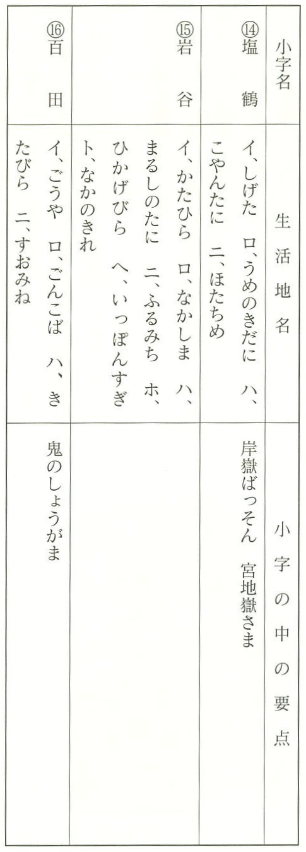 小字名
生活地名
小字の中の要点
⑭塩鶴
イ、しげた ロ、うめのきだに ハ、
こやんたに ニ、ほたちめ
岸嶽ばっそん 宮地嶽さま
⑮岩谷
イ、かたひら ロ、なかしま ハ、
まるしのたに ニ、ふるみち ホ、
ひかげびら ヘ、いっぽんすぎ
ト、なかのきれ
⑯百田
イ、ごうや ロ、ごんこば ハ、き
たびら ニ、すおみね
鬼のしょうがま